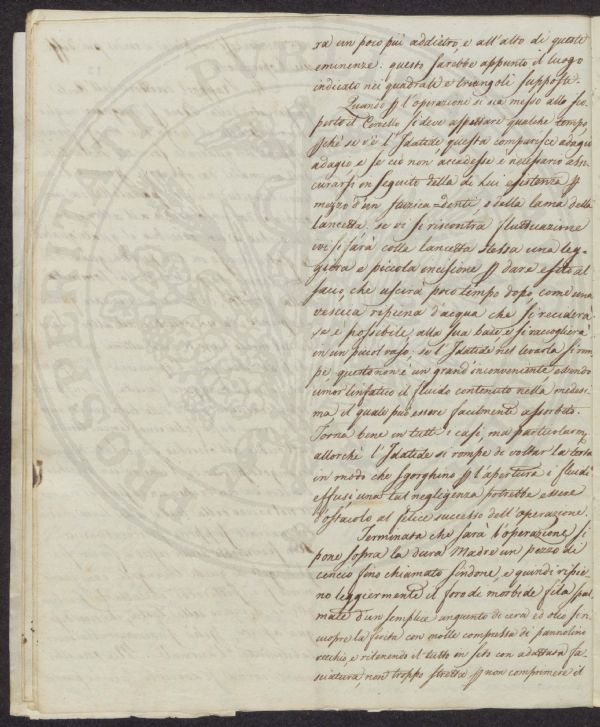 ra un poco più addietro, e all'alto di queste
eminenze: questo sarebbe appunto il luogo
indicato nei quadrati e triangoli supposti.
Quando ꝑ l'operazione si sia messo allo sco-
perto il Cervello si deve aspettare qualche tempo,
ꝑchè se v'è l'Idatide questa comparisce adagio
adagio e se ciò non accadesse è necessario assi-
curarsi in seguito della di lui esistenza ꝑ
mezzo d'un stuzica=denti o della lama della
lancetta. se vi si riscontra fluttuazione
vi si farà colla lancetta stessa una leg-
giera e piccola incisione ꝑ dare esito al
sacco, che uscirà poco tempo dopo, come una
vescica ripiena d'acqua che si reciderà
se è possibile alla sua base, e si raccoglierà
in un piccol vaso; se l'Idatide nel levarla si rom-
pe questo non è un grand'inconveniente essendo
umor linfatico il fluido contenuto nella medesi-
ma il quale può essere facilmente assorbito.
Torna bene in tutti i casi, ma particolarm.
allorchè l'Idatide si rompe di voltar la testa
in modo che sgorghino ꝑ l'apertura i fluidi
effusi una tal negligenza potrebbe essere
d'ostacolo al felice successo dell'operazione.
Terminata che sarà l'operazione si
pone sopra la dura Madre un pezzo di
cencio fino chiamato sindone, e quindi ripie-
no leggiermente il foro di morbide fila spal-
mate d'un semplice unguento di cera ed olio si ri-
cuopre la ferita con molle compressa di pannolino
vecchio, e ritenendo il tutto in sito con adattata fa-
sciatura, non troppo stretta ꝑ non comprimere il